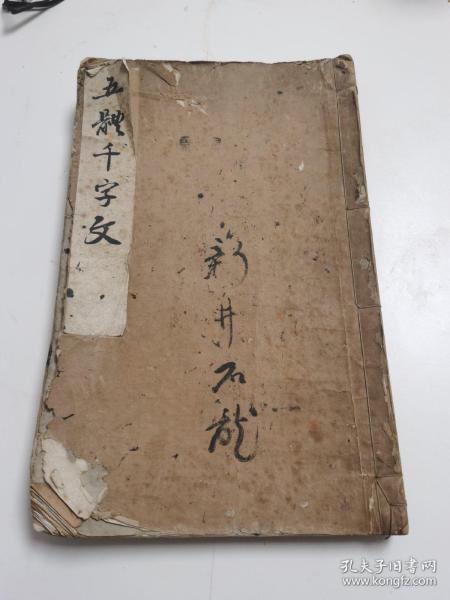 五體千字文
新井石龍
孔夫子旧书网
www.kongfz.com